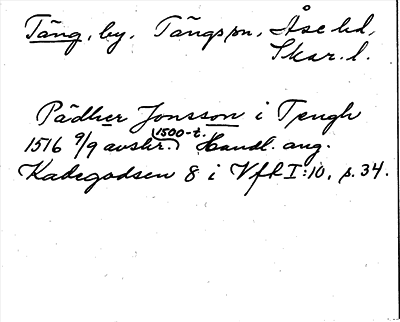 Täng, by. Tängs sn, Åse hd,
Skar. l.
Pädher Jonsson i Tengh
1516 9/9 avskr. (1500-t.) Handl. ang.
Kakegodsen 8 i Vfl I:10, s. 34.